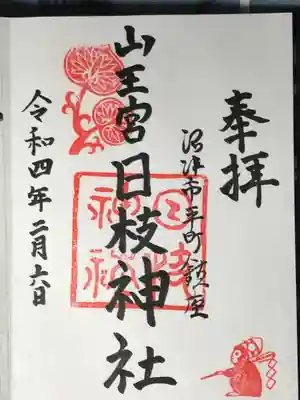 奉拝
沼津市平町鎮座
山王宮日枝神社
令和四年二月六日